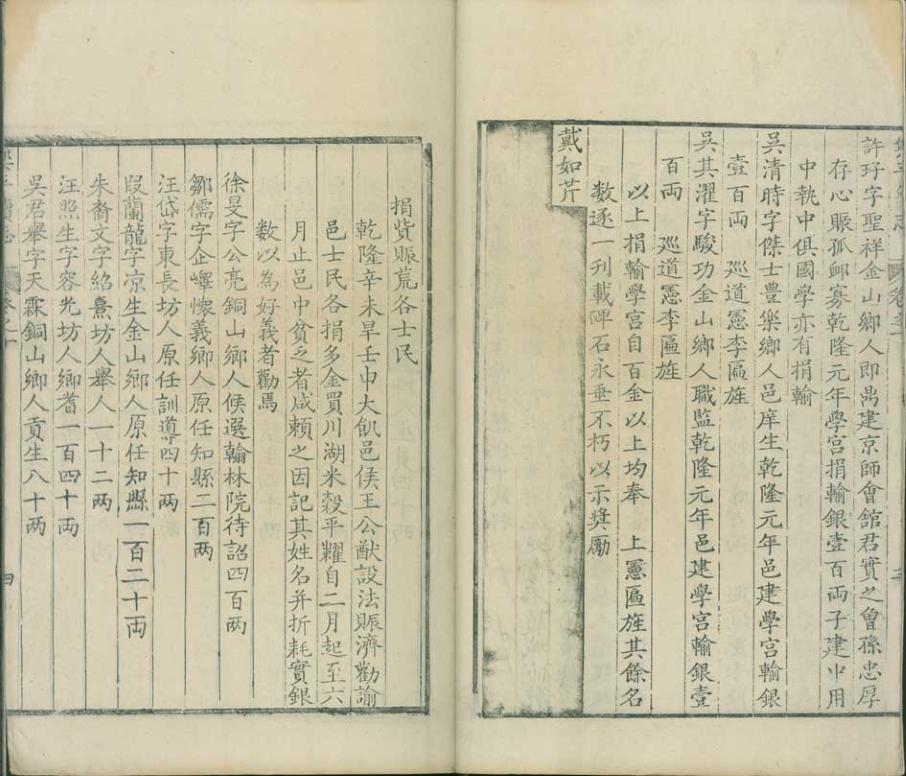 許玗字聖祥金山鄉人即鼎建京師會館君實之曾孫忠厚
存心賑孤卹寡乾隆元年學宮捐輸銀壹百両子建中用
中執中俱國學亦有捐輸
吳清時字傑士豊樂鄉人邑庠生乾隆元年邑建學宮輸銀
壹百両　巡道憲李匾旌
吳其濯字駿功金山鄉人職監乾隆元年邑建學宮輸銀壹
百両　巡道憲李匾旌
以上捐輸學宮自百金以上均奉　上憲匾旌其餘名
数逐一刊載碑石永垂不朽以示奬勵
戴如芹
捐貲賑荒各士民
乾隆辛未旱壬申大飢邑侯王公猷設法賑濟勸諭
邑士民各捐多金買川湖米穀平糶自二月起至六
月止邑中貧乏者咸頼之因記其姓名并折耗實銀
数以為好義者勸焉
徐旻字公亮銅山鄉人候選翰林院待詔四百両
鄒儒字企嶧懷義鄉人原任知縣二百両
汪岱字東長坊人原任訓導四十両
段蘭龍字凉生金山鄉人原任知縣一百二十両
朱裔文字紹熹坊人舉人一十二両
汪照生字容光坊人鄉耆一百四十両
吳君舉字天霖銅山鄉人貢生八十両
四